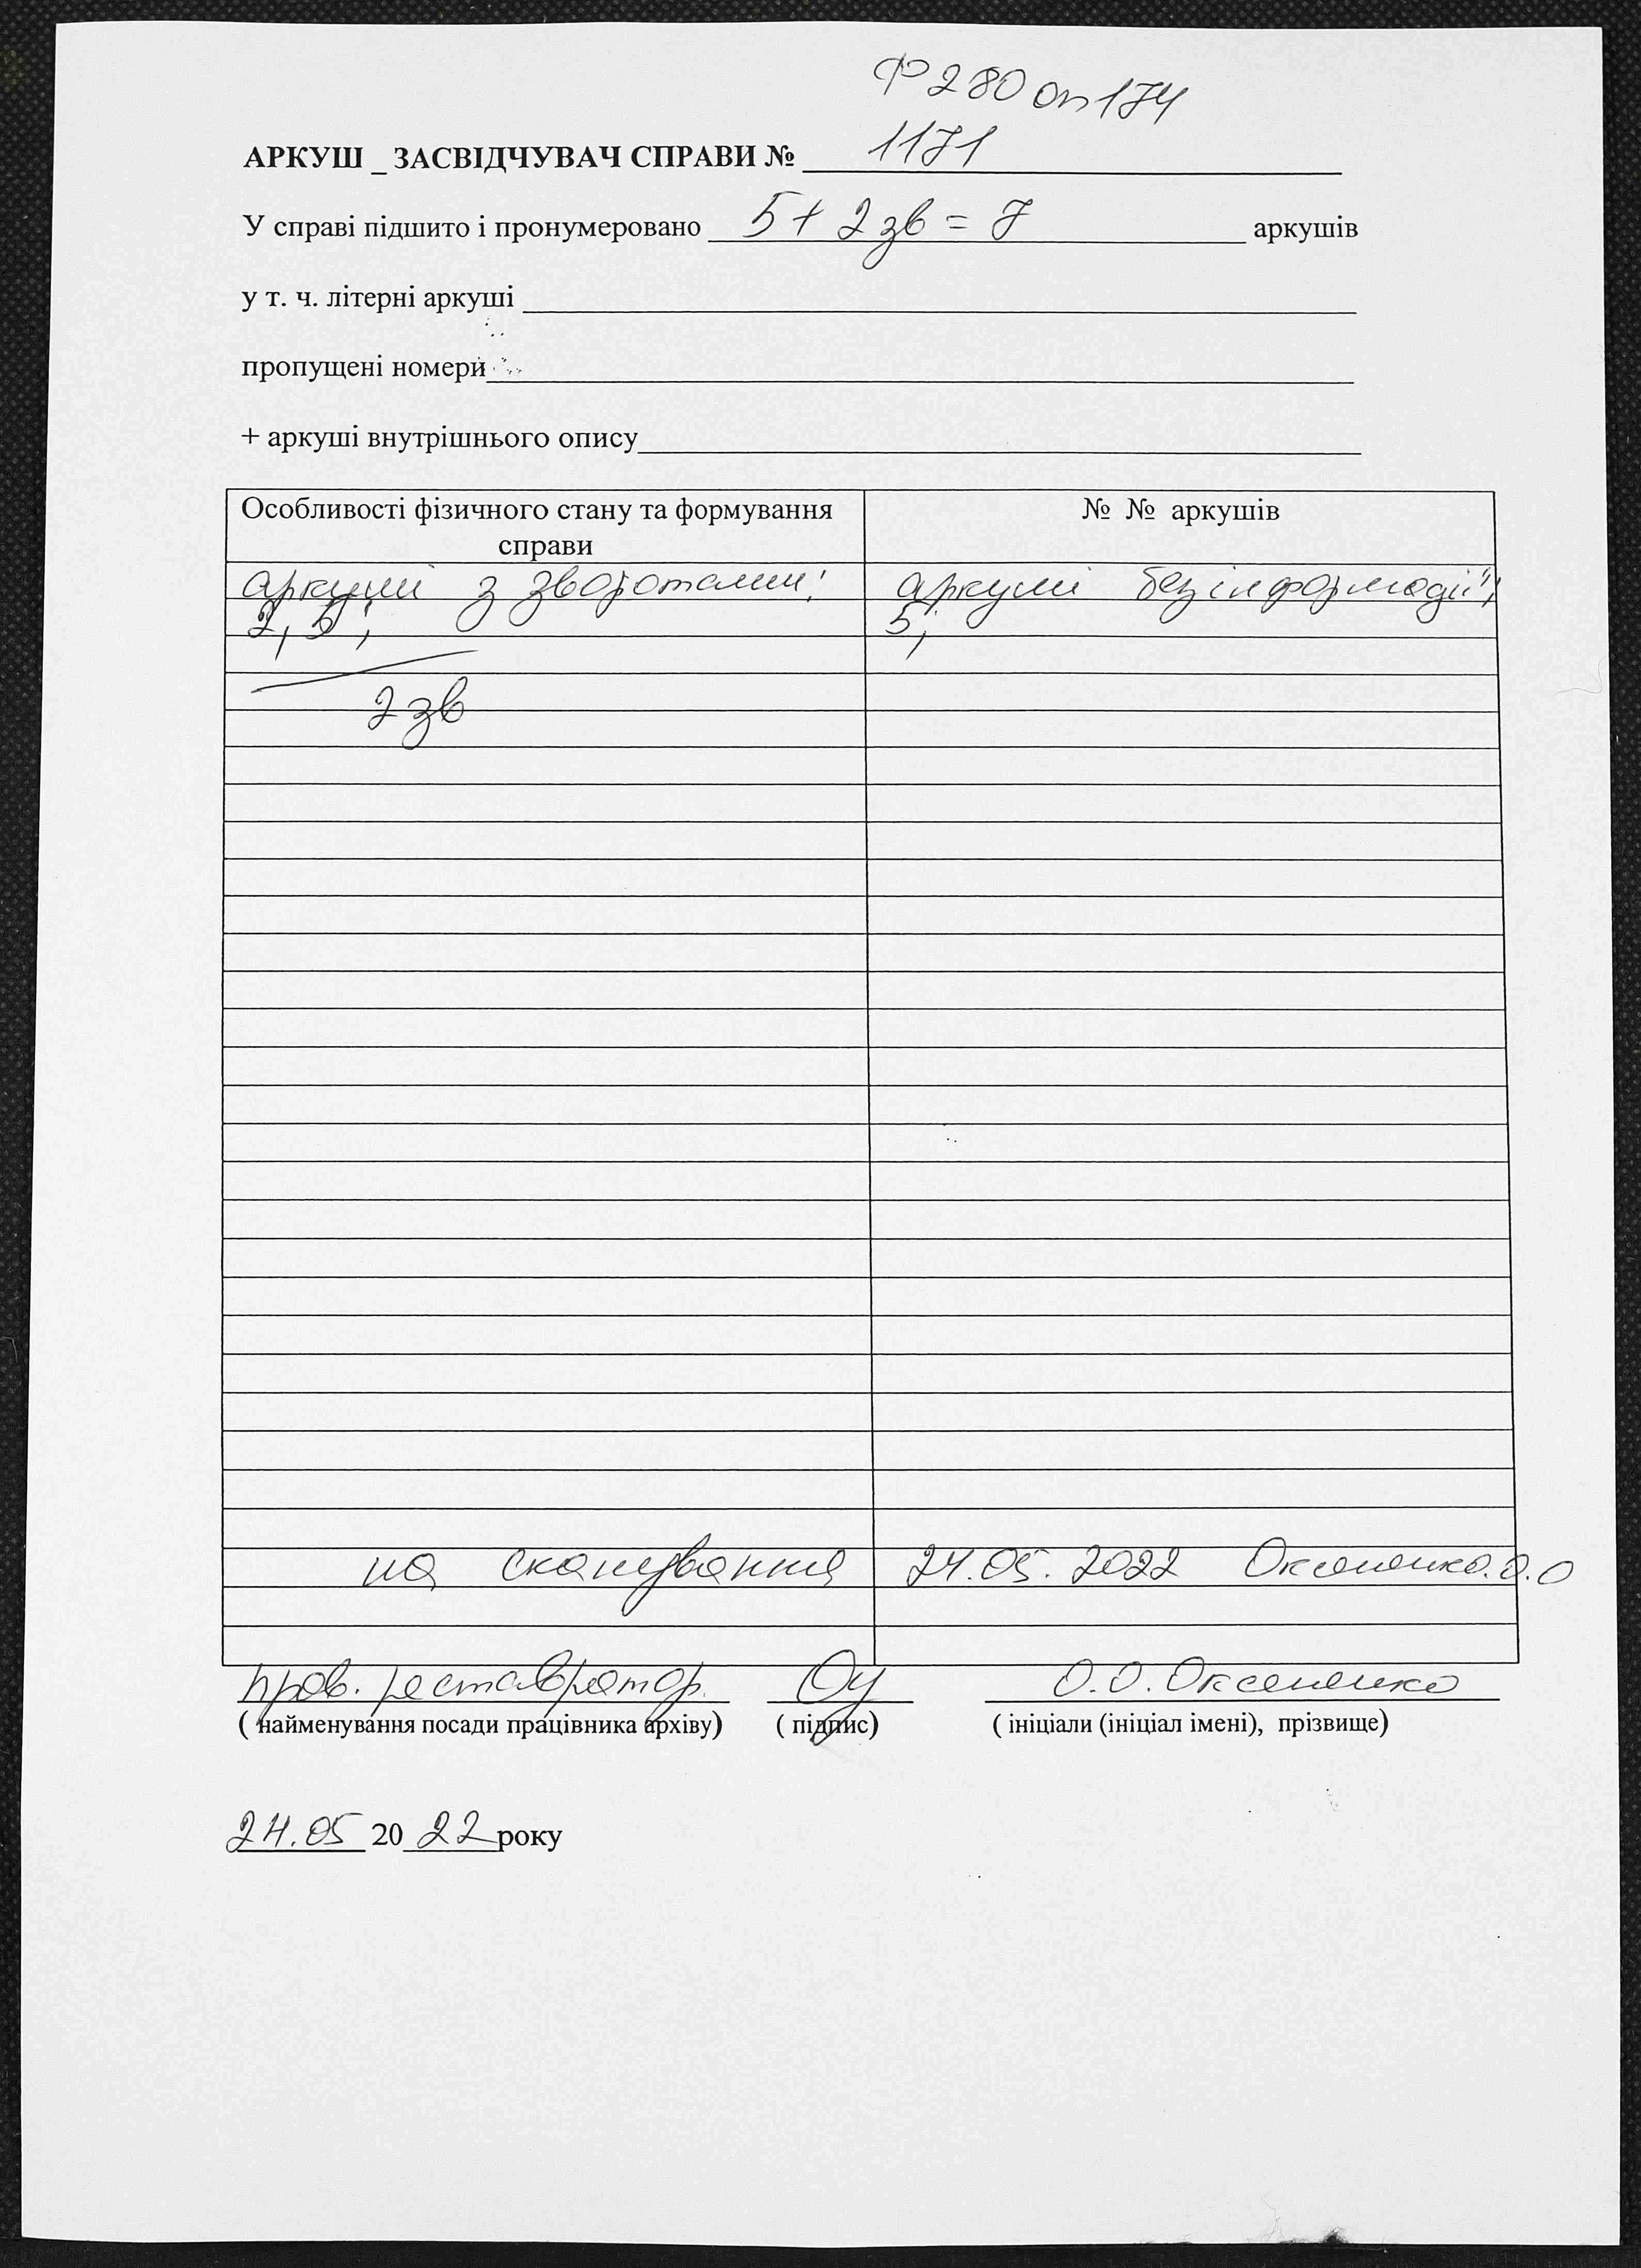 Ф 280 оп 174
АРКУШ _ ЗАСВІДЧУВАЧ СПРАВИ № 1171
У справі підшито і пронумеровано 5 + 2 зв = 7 аркушів
у т. ч. літерні аркуші
пропущені номери
+ аркуші внутрішнього опису
Особливості фізичного стану та формування справи
№ № аркушів
аркуші з зворотами:
2, 5;
2 зв
аркуші без інформації;
5;
на сканування 24.05.2022 Оксененко.О.О
пров. реставратор О.О. Оксененко
( найменування посади працівника архіву) ( підпис) ( ініціали (ініціал імені), прізвище)
24.05 20 22 року